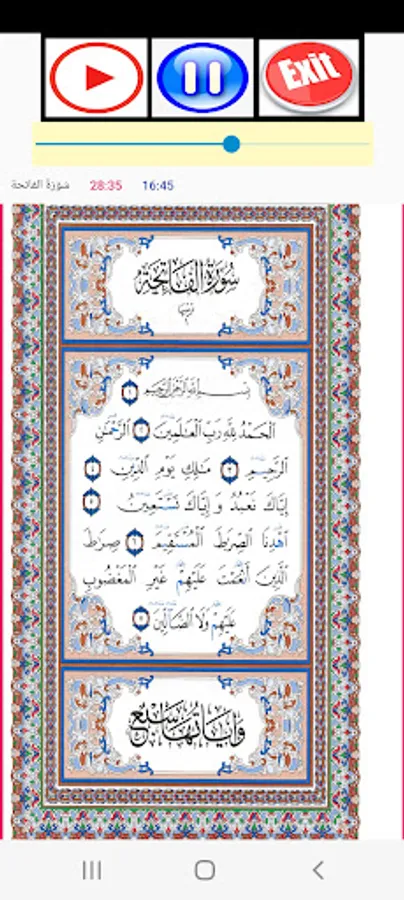 Exit
سورة الفاتحة 28:35 16:45
سُورَةُ الفَاتِحَةِ
بِسْمِ اللَّهِ الرَّحْمَٰنِ الرَّحِيمِ ١
الْحَمْدُ لِلَّهِ رَبِّ الْعَالَمِينَ ٢ الرَّحْمَٰنِ
الرَّحِيمِ ٣ مَالِكِ يَوْمِ الدِّينِ ٤
إِيَّاكَ نَعْبُدُ وَإِيَّاكَ نَسْتَعِينُ ٥
اهْدِنَا الصِّرَاطَ الْمُسْتَقِيمَ ٦ صِرَاطَ
الَّذِينَ أَنْعَمْتَ عَلَيْهِمْ غَيْرِ الْمَغْضُوبِ
عَلَيْهِمْ وَلَا الضَّالِّينَ ٧
وَآيَاتُهَا سَبْعٌ